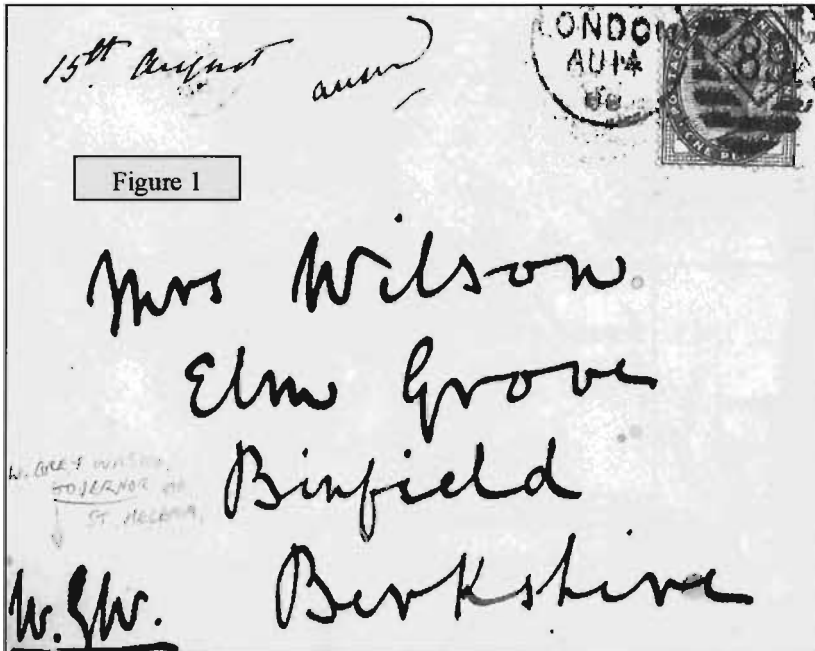 15th August
answd
LONDON
AU 14
88
Figure 1
Mrs Wilson
Elm Grove
Binfield
Berkshire
W. GREY WILSON
GOVERNOR OF
ST HELENA.
W.G.W.